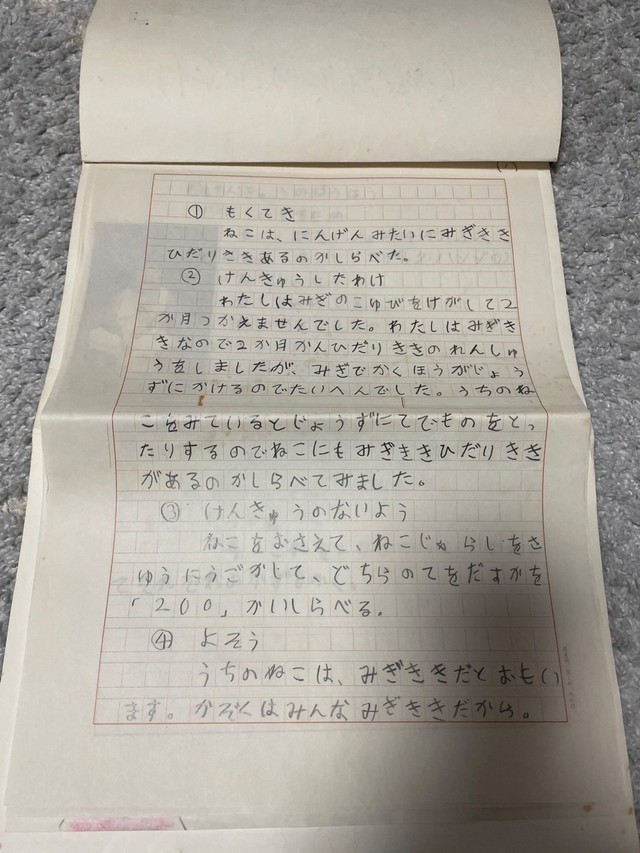 ① もくてき
ねこは、にんげんみたいにみぎきき
ひだりききあるのかしらべた。
② けんきゅうしたわけ
わたしはみぎのこゆびをけがして2
か月つかえませんでした。わたしはみぎき
きなので2か月がんひだりききのれんしゅ
うをしましたが、みぎでかくほうがじょう
ずにかけるのでたいへんでした。うちのね
こをみているとじょうずにてでものをとっ
たりするのでねこにもみぎききひだりきき
があるのかしらべてみました。
③ けんきゅうのないよう
ねこをおさえて、ねこじゃらしをさ
ゆうにうごかして、どちらのてをだすかを
「200」かいしらべる。
④ よそう
うちのねこは、みぎききだとおもい
ます。かぞくはみんなみぎききだから。